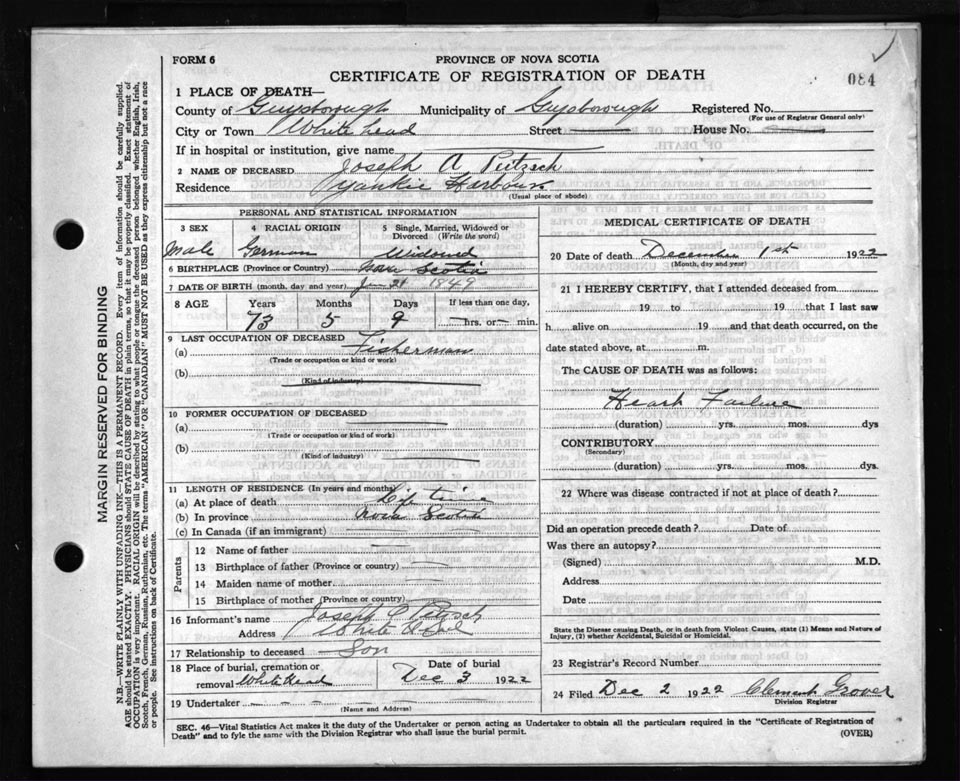 FORM 6
PROVINCE OF NOVA SCOTIA
CERTIFICATE OF REGISTRATION OF DEATH
084
1 PLACE OF DEATH—
County of Guysborough Municipality of Guysborough Registered No.
(For use of Registrar General only)
City or Town White head Street House No.
If in hospital or institution, give name
2 NAME OF DECEASED Joseph A Peitzsch
Residence Yankie Harbour
(Usual place of abode)
PERSONAL AND STATISTICAL INFORMATION
3 SEX 4 RACIAL ORIGIN 5 Single, Married, Widowed or Divorced (Write the word)
Male German Widowed
6 BIRTHPLACE (Province or Country) Nova Scotia
7 DATE OF BIRTH (month, day and year) Jun 21 1849
8 AGE Years Months Days If less than one day,
73 5 9 hrs. or min.
9 LAST OCCUPATION OF DECEASED
(a) Fisherman
(Trade or occupation or kind or work)
(b)
(Kind of industry)
10 FORMER OCCUPATION OF DECEASED
(a)
(Trade or occupation or kind of work)
(b)
(Kind of industry)
11 LENGTH OF RESIDENCE (In years and months)
(a) At place of death Life time
(b) In province Nova Scotia
(c) In Canada (if an immigrant)
Parents
12 Name of father
13 Birthplace of father (Province or country)
14 Maiden name of mother
15 Birthplace of mother (Province or Country)
16 Informant's name Joseph
Address White Head
17 Relationship to deceased Son
18 Place of burial, cremation or removal White Head
Date of burial
Dec 3 1922
19 Undertaker
(Name and Address)
MEDICAL CERTIFICATE OF DEATH
20 Date of death December 1st 1922
(Month, day and year)
21 I HEREBY CERTIFY, that I attended deceased from
19 to 19 that I last saw
h alive on 19 and that death occurred, on the
date stated above, at m.
The CAUSE OF DEATH was as follows:
Heart Failure
(duration) yrs. mos. dys
CONTRIBUTORY
(Secondary)
(duration) yrs. mos. dys.
22 Where was disease contracted if not at place of death?
Did an operation precede death? Date of
Was there an autopsy?
(Signed) M.D.
Address
Date
State the Disease causing Death, or in death from Violent Causes, state (1) Means and Nature of
Injury, (2) whether Accidental, Suicidal or Homicidal.
23 Registrar's Record Number
24 Filed Dec 2 1922 Clement Grover
Division Registrar
SEC. 46—Vital Statistics Act makes it the duty of the Undertaker or person acting as Undertaker to obtain all the particulars required in the "Certificate of Registration of
Death" and to fyle the same with the Division Registrar who shall issue the burial permit.
(OVER)
MARGIN RESERVED FOR BINDING
N.B.—WRITE PLAINLY WITH UNFADING INK—THIS IS A PERMANENT RECORD. Every item of information should be carefully supplied.
AGE should be stated EXACTLY. PHYSICIANS should STATE CAUSE OF DEATH in plain terms, so that it may be properly classified. Exact statement of
OCCUPATION is very important. RACIAL ORIGIN will be described by stating to what people or tongue the deceased person belonged whether English, Irish,
Scotch, French, German, Russian, Ruthenian, etc. The terms "AMERICAN" or "CANADIAN" MUST NOT BE USED as they express citizenship but not a race
or people. See instructions on back of Certificate.